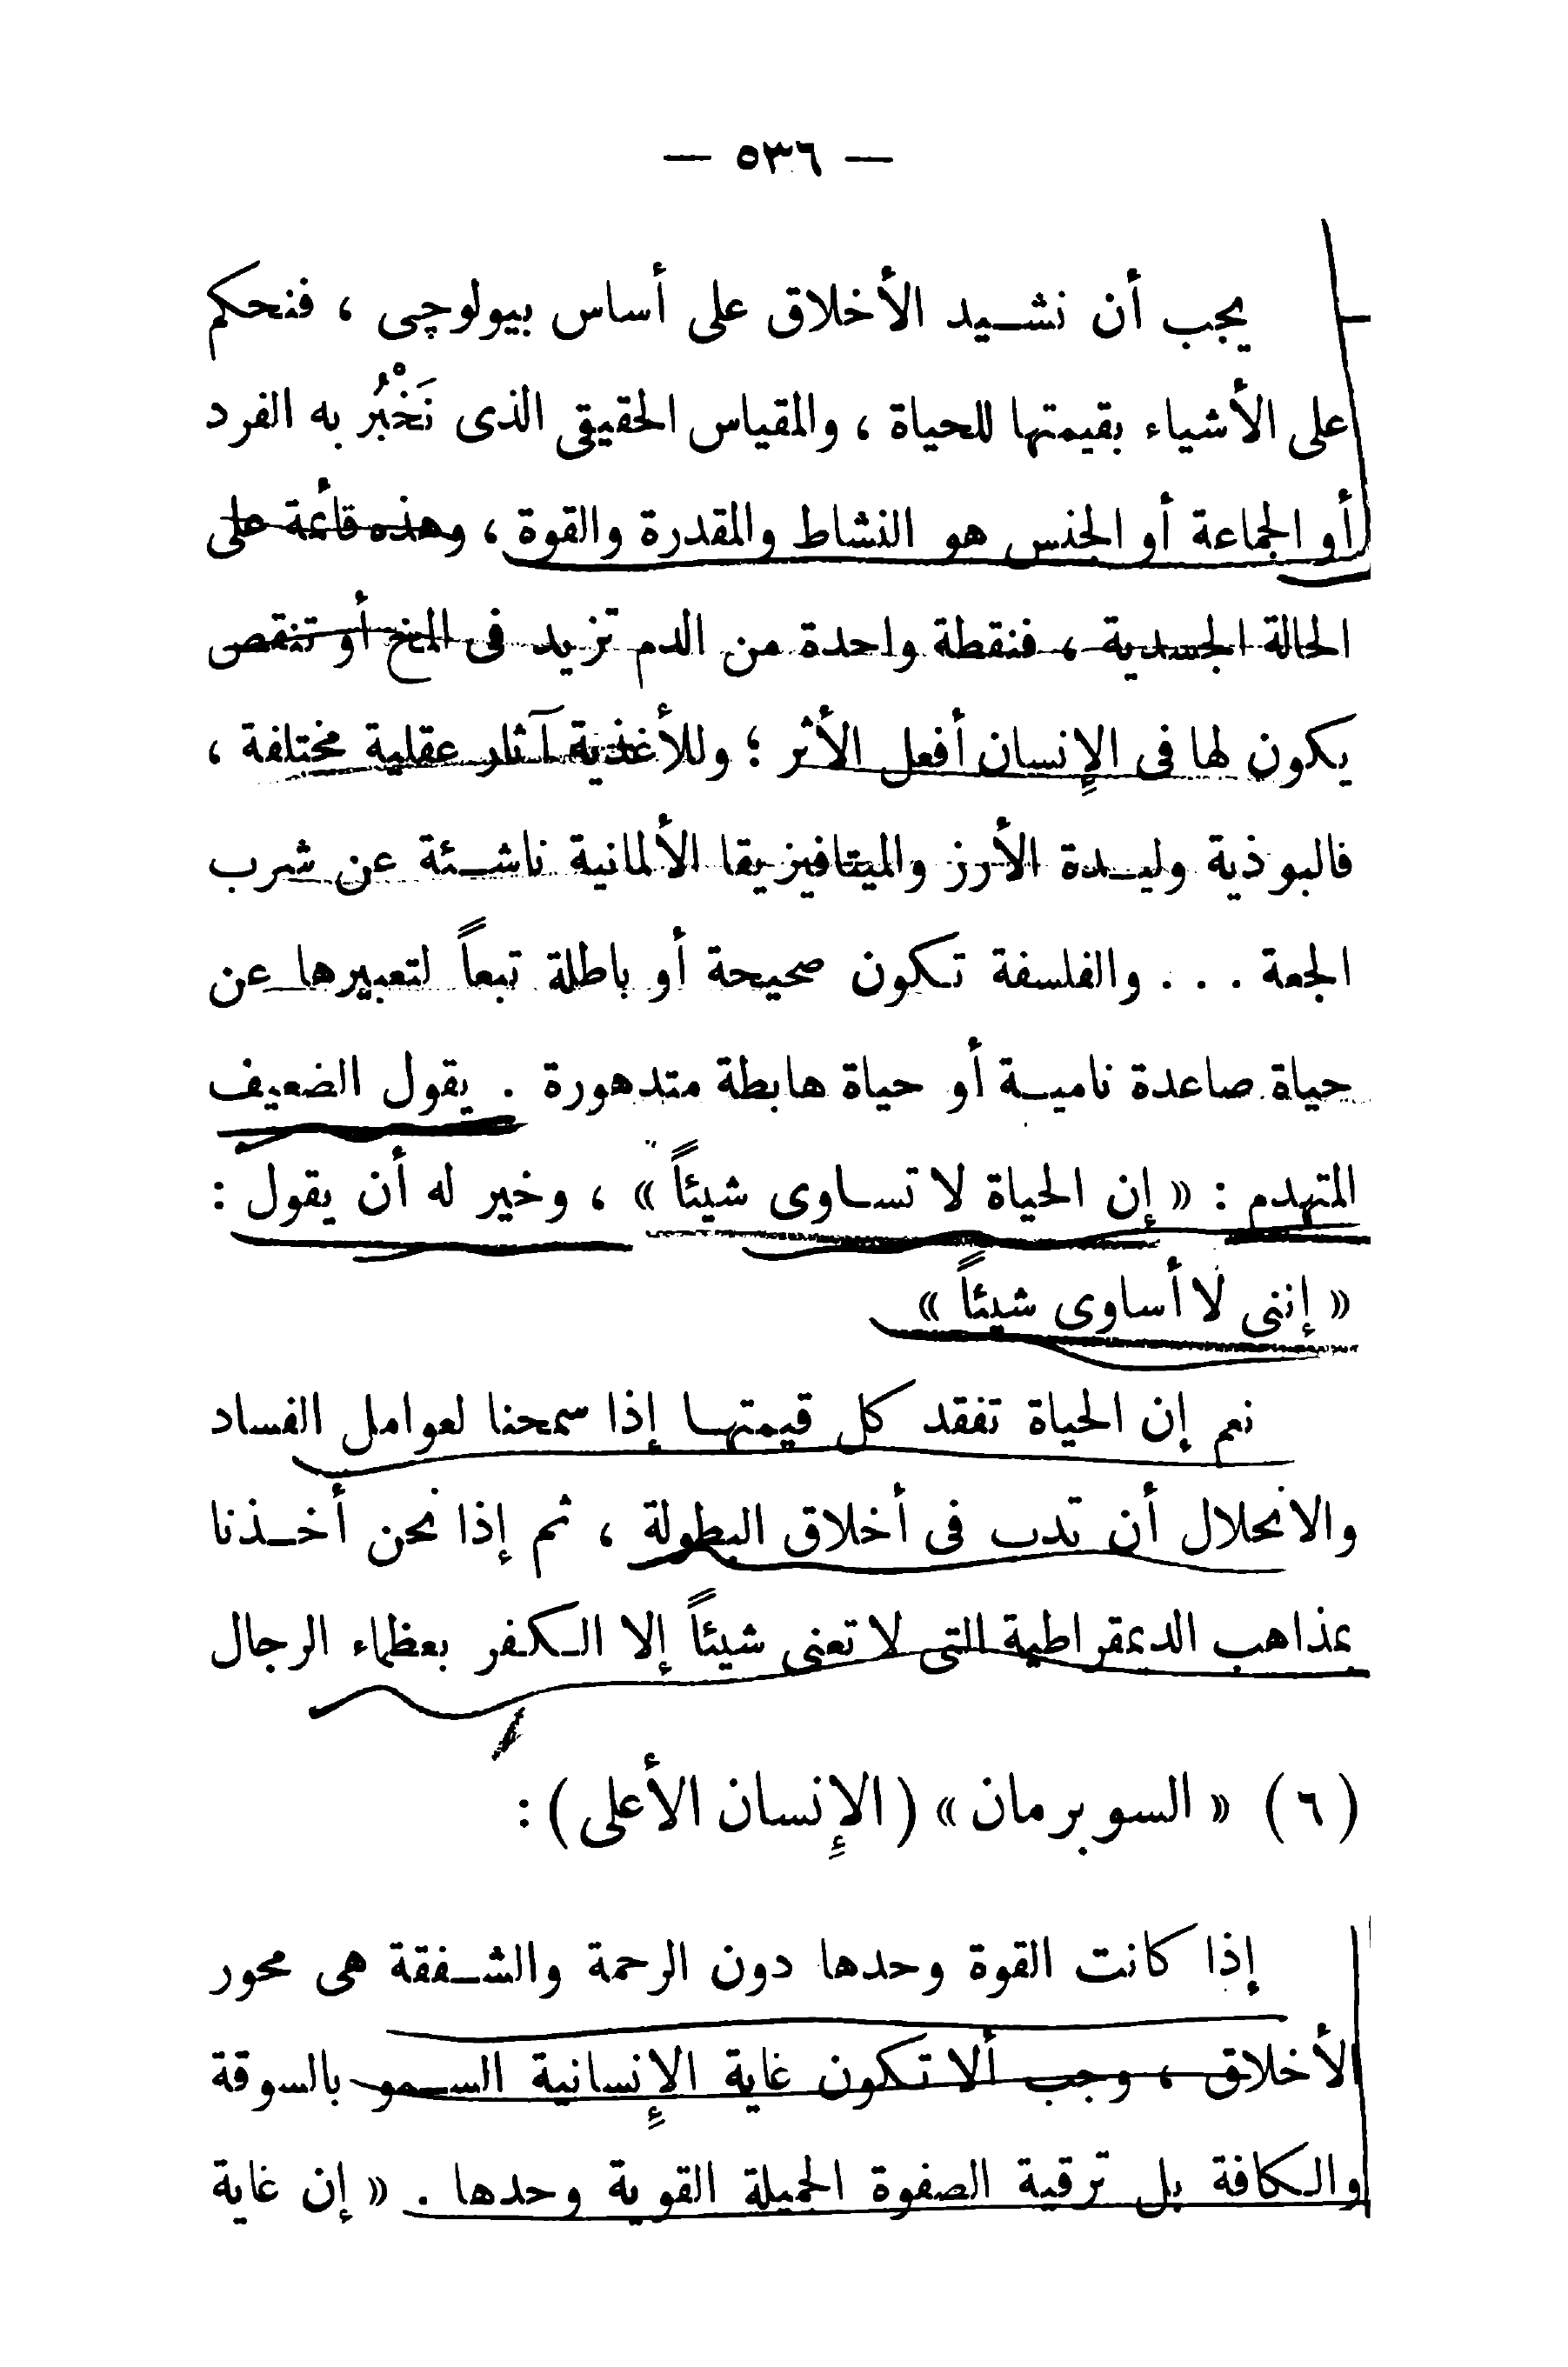 — ٥٣٦ —
يجب أن نشـيد الأخلاق على أساس بيولوچى ، فنحكم
على الأشياء بقيمتها للحياة ، والمقياس الحقيقى الذى نَخْبُر به الفرد
أو الجماعة أو الجنس هو النشاط والمقدرة والقوة ، وهذه قائمة على
الحالة الجسدية ، فنقطة واحدة من الدم تزيد فى المخ أو تنقص
يكون لها فى الإنسان أفعل الأثر ؛ وللأغذية آثار عقلية مختلفة ،
فالبوذية وليـدة الأرز والميتافيزيقا الألمانية ناشـئة عن شرب
الجعة . . . والفلسفة تكون صحيحة أو باطلة تبعاً لتعبيرها عن
حياة صاعدة ناميـة أو حياة هابطة متدهورة . يقول الضعيف
المتهدم : « إن الحياة لا تسـاوى شيئاً » ، وخير له أن يقول :
« إننى لا أساوى شيئاً »
نعم إن الحياة تفقد كل قيمتهـا إذا سمحنا لعوامل الفساد
والانحلال أن تدب فى أخلاق البطولة ، ثم إذا نحن أخـذنا
بمذاهب الديمقراطية التى لا تعنى شيئاً إلا الـكفر بعظماء الرجال
( ٦ ) « السوبرمان » ( الإنسان الأعلى ) :
إذا كانت القوة وحدها دون الرحمة والشـفقة هى محور
الأخلاق ، وجب ألا تكون غاية الإنسانية السـمو بالسوقة
والـكافة بل ترقية الصفوة الجميلة القوية وحدها . « إن غاية